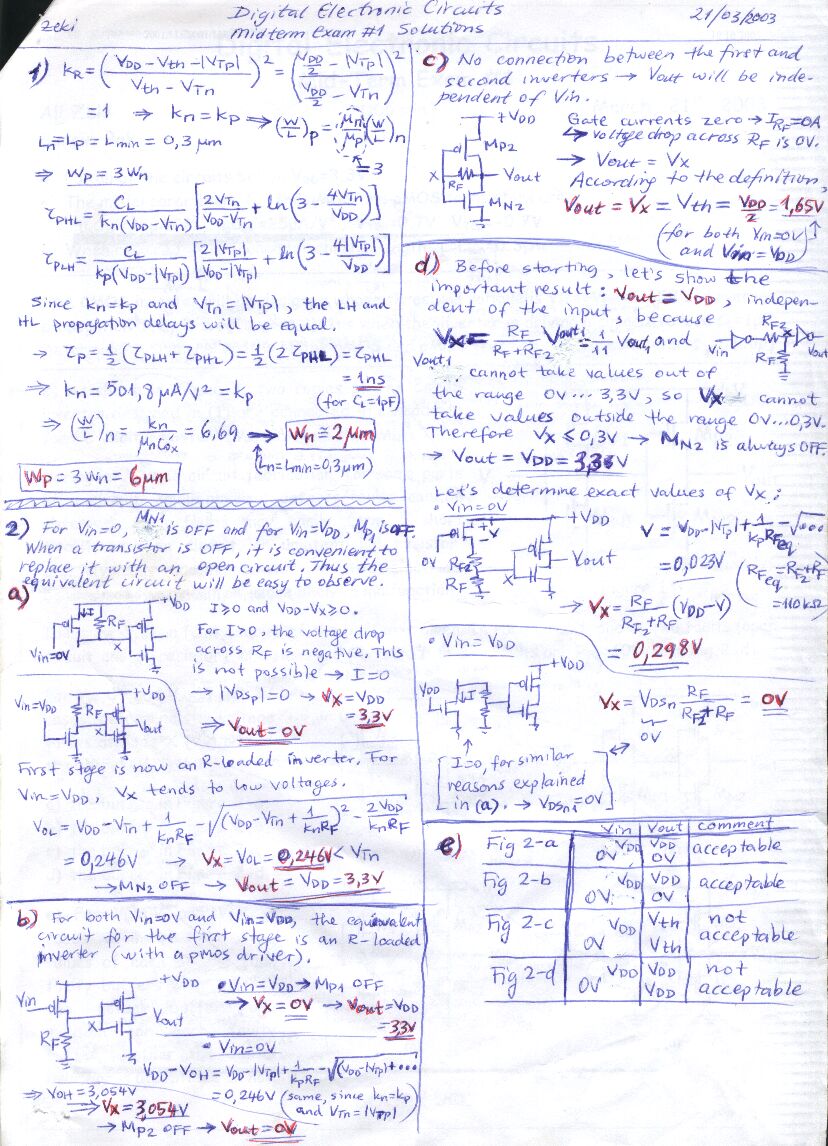 zeki
Digital Electronic Circuits
midterm Exam #1 Solutions
21/03/2003
1) kR = ((VDD - Vth - |VTp|) / (Vth - VTn))² = ((VDD/2 - |VTp|) / (VDD/2 - VTn))²
= 1 ⇒ kn = kp ⇒ (W/L)p = μn/μp (W/L)n
= 3
Ln = Lp = Lmin = 0,3 μm
⇒ Wp = 3Wn
τPHL = CL / (kn(VDD-VTn)) [2VTn / (VDD-VTn) + ln(3 - 4VTn/VDD)]
τPLH = CL / (kp(VDD-|VTp|)) [2|VTp| / (VDD-|VTp|) + ln(3 - 4|VTp|/VDD)]
Since kn=kp and VTn = |VTp|, the LH and
HL propagation delays will be equal.
→ τP = 1/2 (τPLH + τPHL) = 1/2 (2τPHL) = τPHL
= 1ns
(for CL=1pF)
⇒ kn = 501,8 μA/V² = kp
⇒ (W/L)n = kn / (μnCóx) = 6,69 → Wn ≅ 2μm
(Ln=Lmin=0,3μm)
Wp = 3Wn = 6μm
2) For Vin=0, MN1 is OFF and for Vin=VDD, Mp1 is OFF.
When a transistor is OFF, it is convenient to
replace it with an open circuit. Thus the
equivalent circuit will be easy to observe.
a)
+VDD
I
RF
x
Vin=0V
I≥0 and VDD-Vx≥0.
For I>0, the voltage drop
across RF is negative. This
is not possible → I=0
→ |VDSp|=0 → Vx=VDD
= 3,3V
⇒ Vout = 0V
Vin=VDD
+VDD
RF
x
Vout
First stage is now an R-loaded inverter. For
Vin=VDD, Vx tends to low voltages.
VOL = VDD - VTn + 1/(knRF) - √((VDD - VTn + 1/(knRF))² - 2VDD/(knRF))
= 0,246V → Vx = VOL = 0,246V < VTn
→ MN2 OFF → Vout = VDD = 3,3V
b) For both Vin=0V and Vin=VDD, the equivalent
circuit for the first stage is an R-loaded
inverter (with a pmos driver).
+VDD
Vin
RF
x
Vout
• Vin=VDD → Mp1 OFF
→ Vx = 0V → Vout = VDD
= 3,3V
• Vin=0V
VDD - VOH = VDD - |VTp| + 1/(kpRF) - √((VDD-|VTp|+•••
= 0,246V (same, since kn=kp
and VTn = |VTp|)
⇒ VOH = 3,054V
⇒ Vx = 3,054V
→ Mp2 OFF → Vout = 0V
c) No connection between the first and
second inverters → Vout will be inde-
pendent of Vin.
+VDD
Mp2
x
RF
Vout
MN2
Gate currents zero → IRF=0A
↳ voltage drop across RF is 0V.
→ Vout = Vx
According to the definition,
Vout = Vx = Vth = VDD/2 = 1,65V
(for both Vin=0V
and Vin=VDD)
d) Before starting, let's show the
important result: Vout = VDD, indepen-
dent of the input, because
Vx = RF/(RF+RF2) Vout1 = 1/11 Vout1 and
Vin
RF2
x
RF
Vout
Vout1 cannot take values out of
the range 0V...3,3V, so Vx cannot
take values outside the range 0V...0,3V.
Therefore Vx ≤ 0,3V → MN2 is always OFF.
→ Vout = VDD = 3,3V
Let's determine exact values of Vx:
• Vin=0V
+VDD
+V-
0V
RF2
RF
x
Vout
V = VDD - |VTp| + 1/(kpRFeq) - √•••
= 0,023V
(RFeq = RF2+RF
= 110kΩ)
→ Vx = RF/(RF2+RF) (VDD-V)
= 0,298V
• Vin=VDD
+VDD
VDD
I
x
Vx = VDSn RF/(RF2+RF) = 0V
0V
[I=0, for similar
reasons explained
in (a). → VDSn1=0V]
e)
Vin Vout comment
Fig 2-a VDD VDD acceptable
0V 0V
Fig 2-b VDD VDD acceptable
0V 0V
Fig 2-c VDD Vth not
0V Vth acceptable
Fig 2-d VDD VDD not
0V VDD acceptable